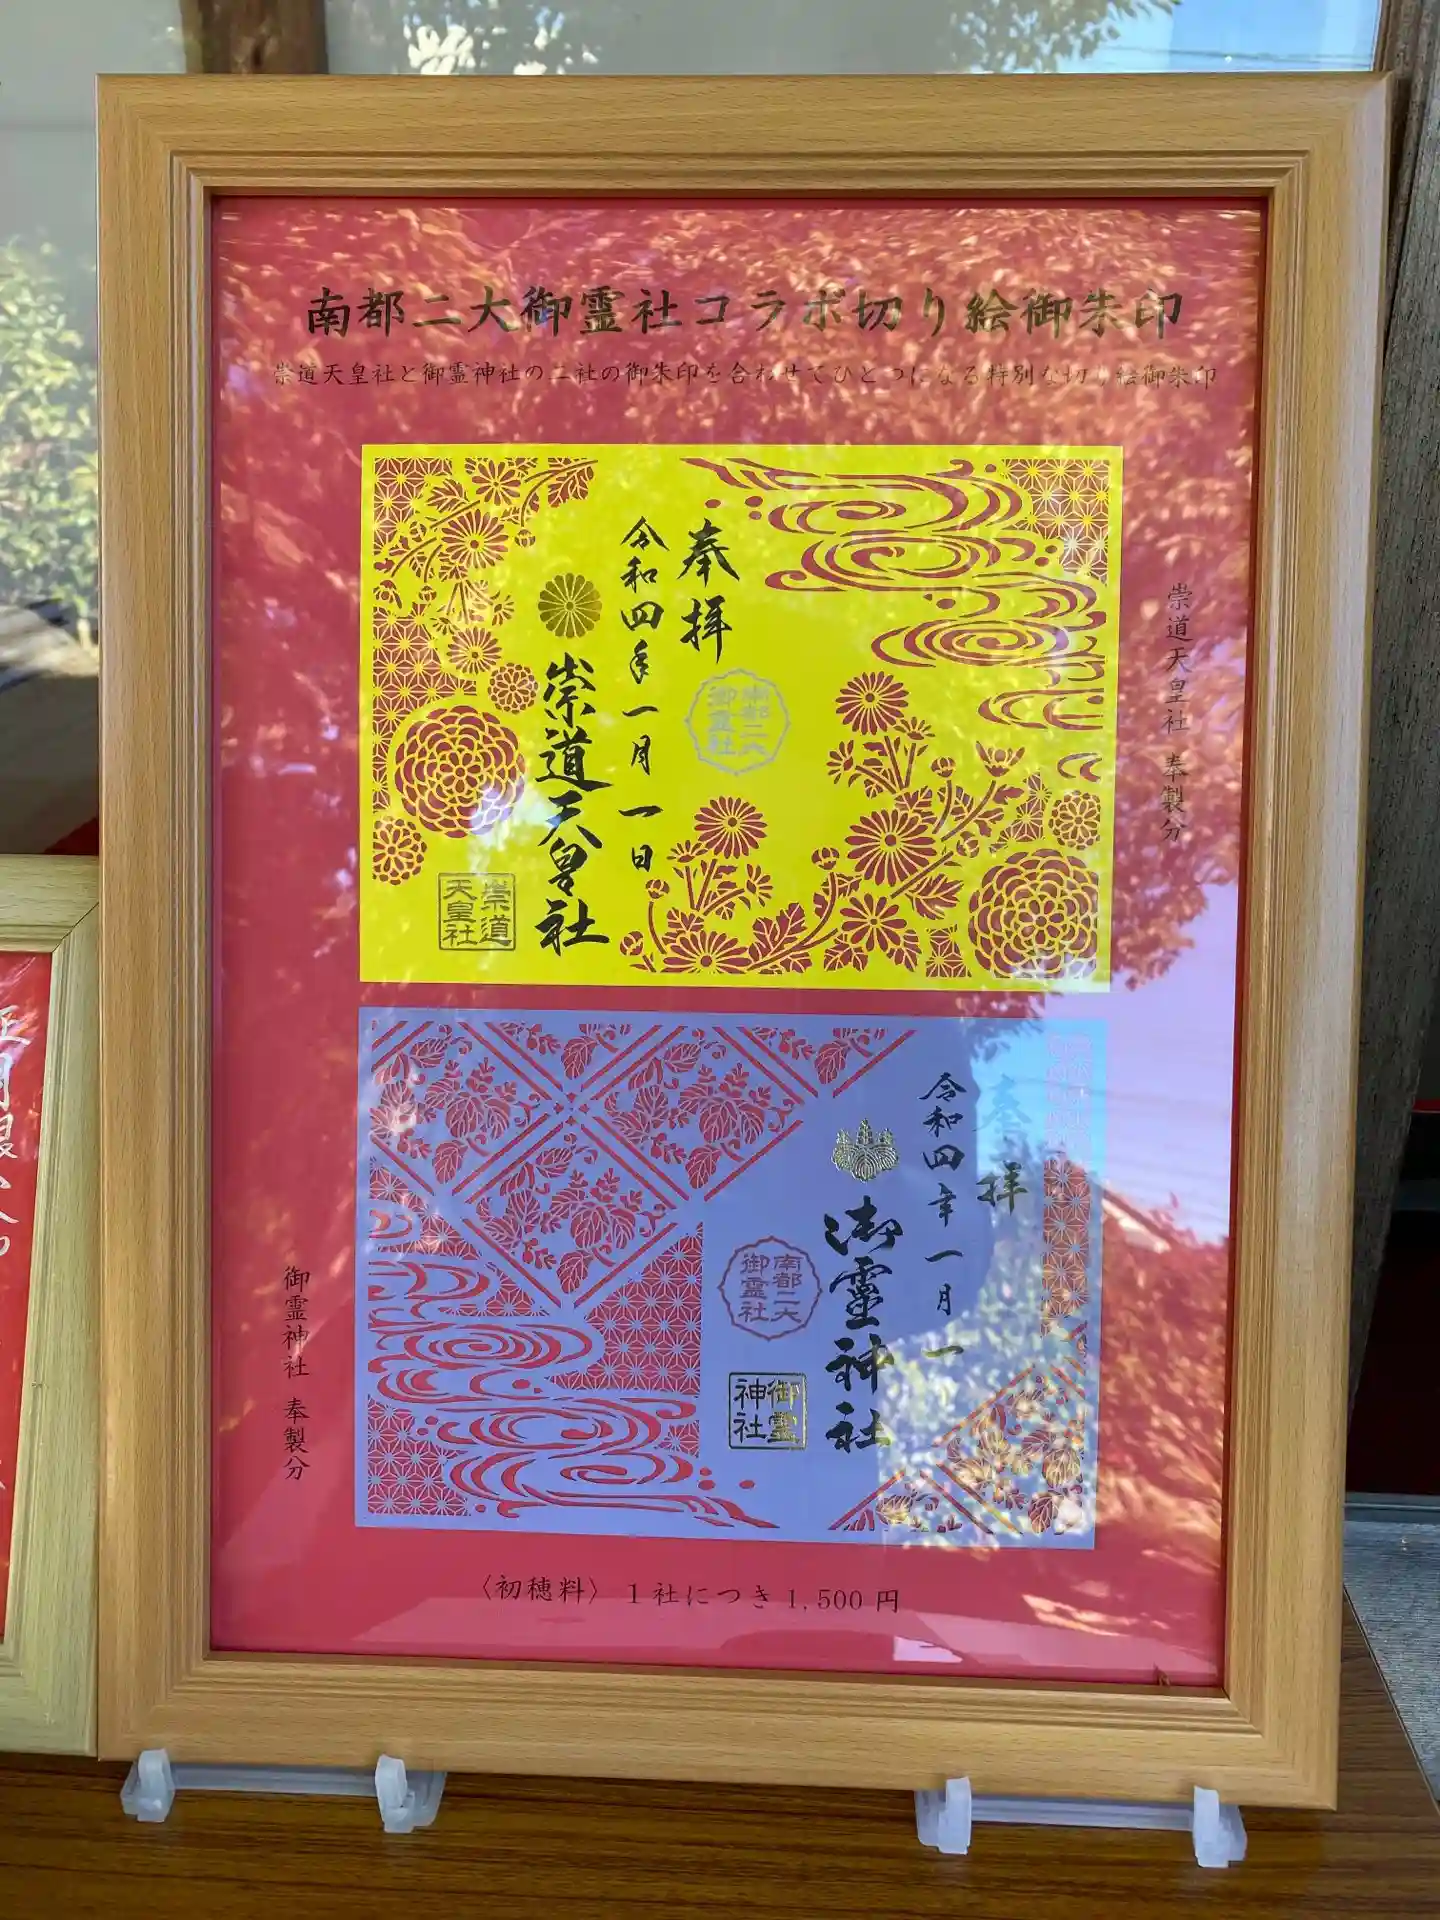 南都二大御霊社コラボ切り絵御朱印
崇道天皇社と御霊神社の二社の御朱印を合わせてひとつになる特別な切り絵御朱印
崇道天皇社 奉製分
奉拝
令和四年一月一日
崇道天皇社
南都二大
御霊社
崇道
天皇社
奉拝
令和四年一月一
御靈神社
南都二大
御霊社
御霊
神社
御霊神社 奉製分
〈初穂料〉1社につき1,500円